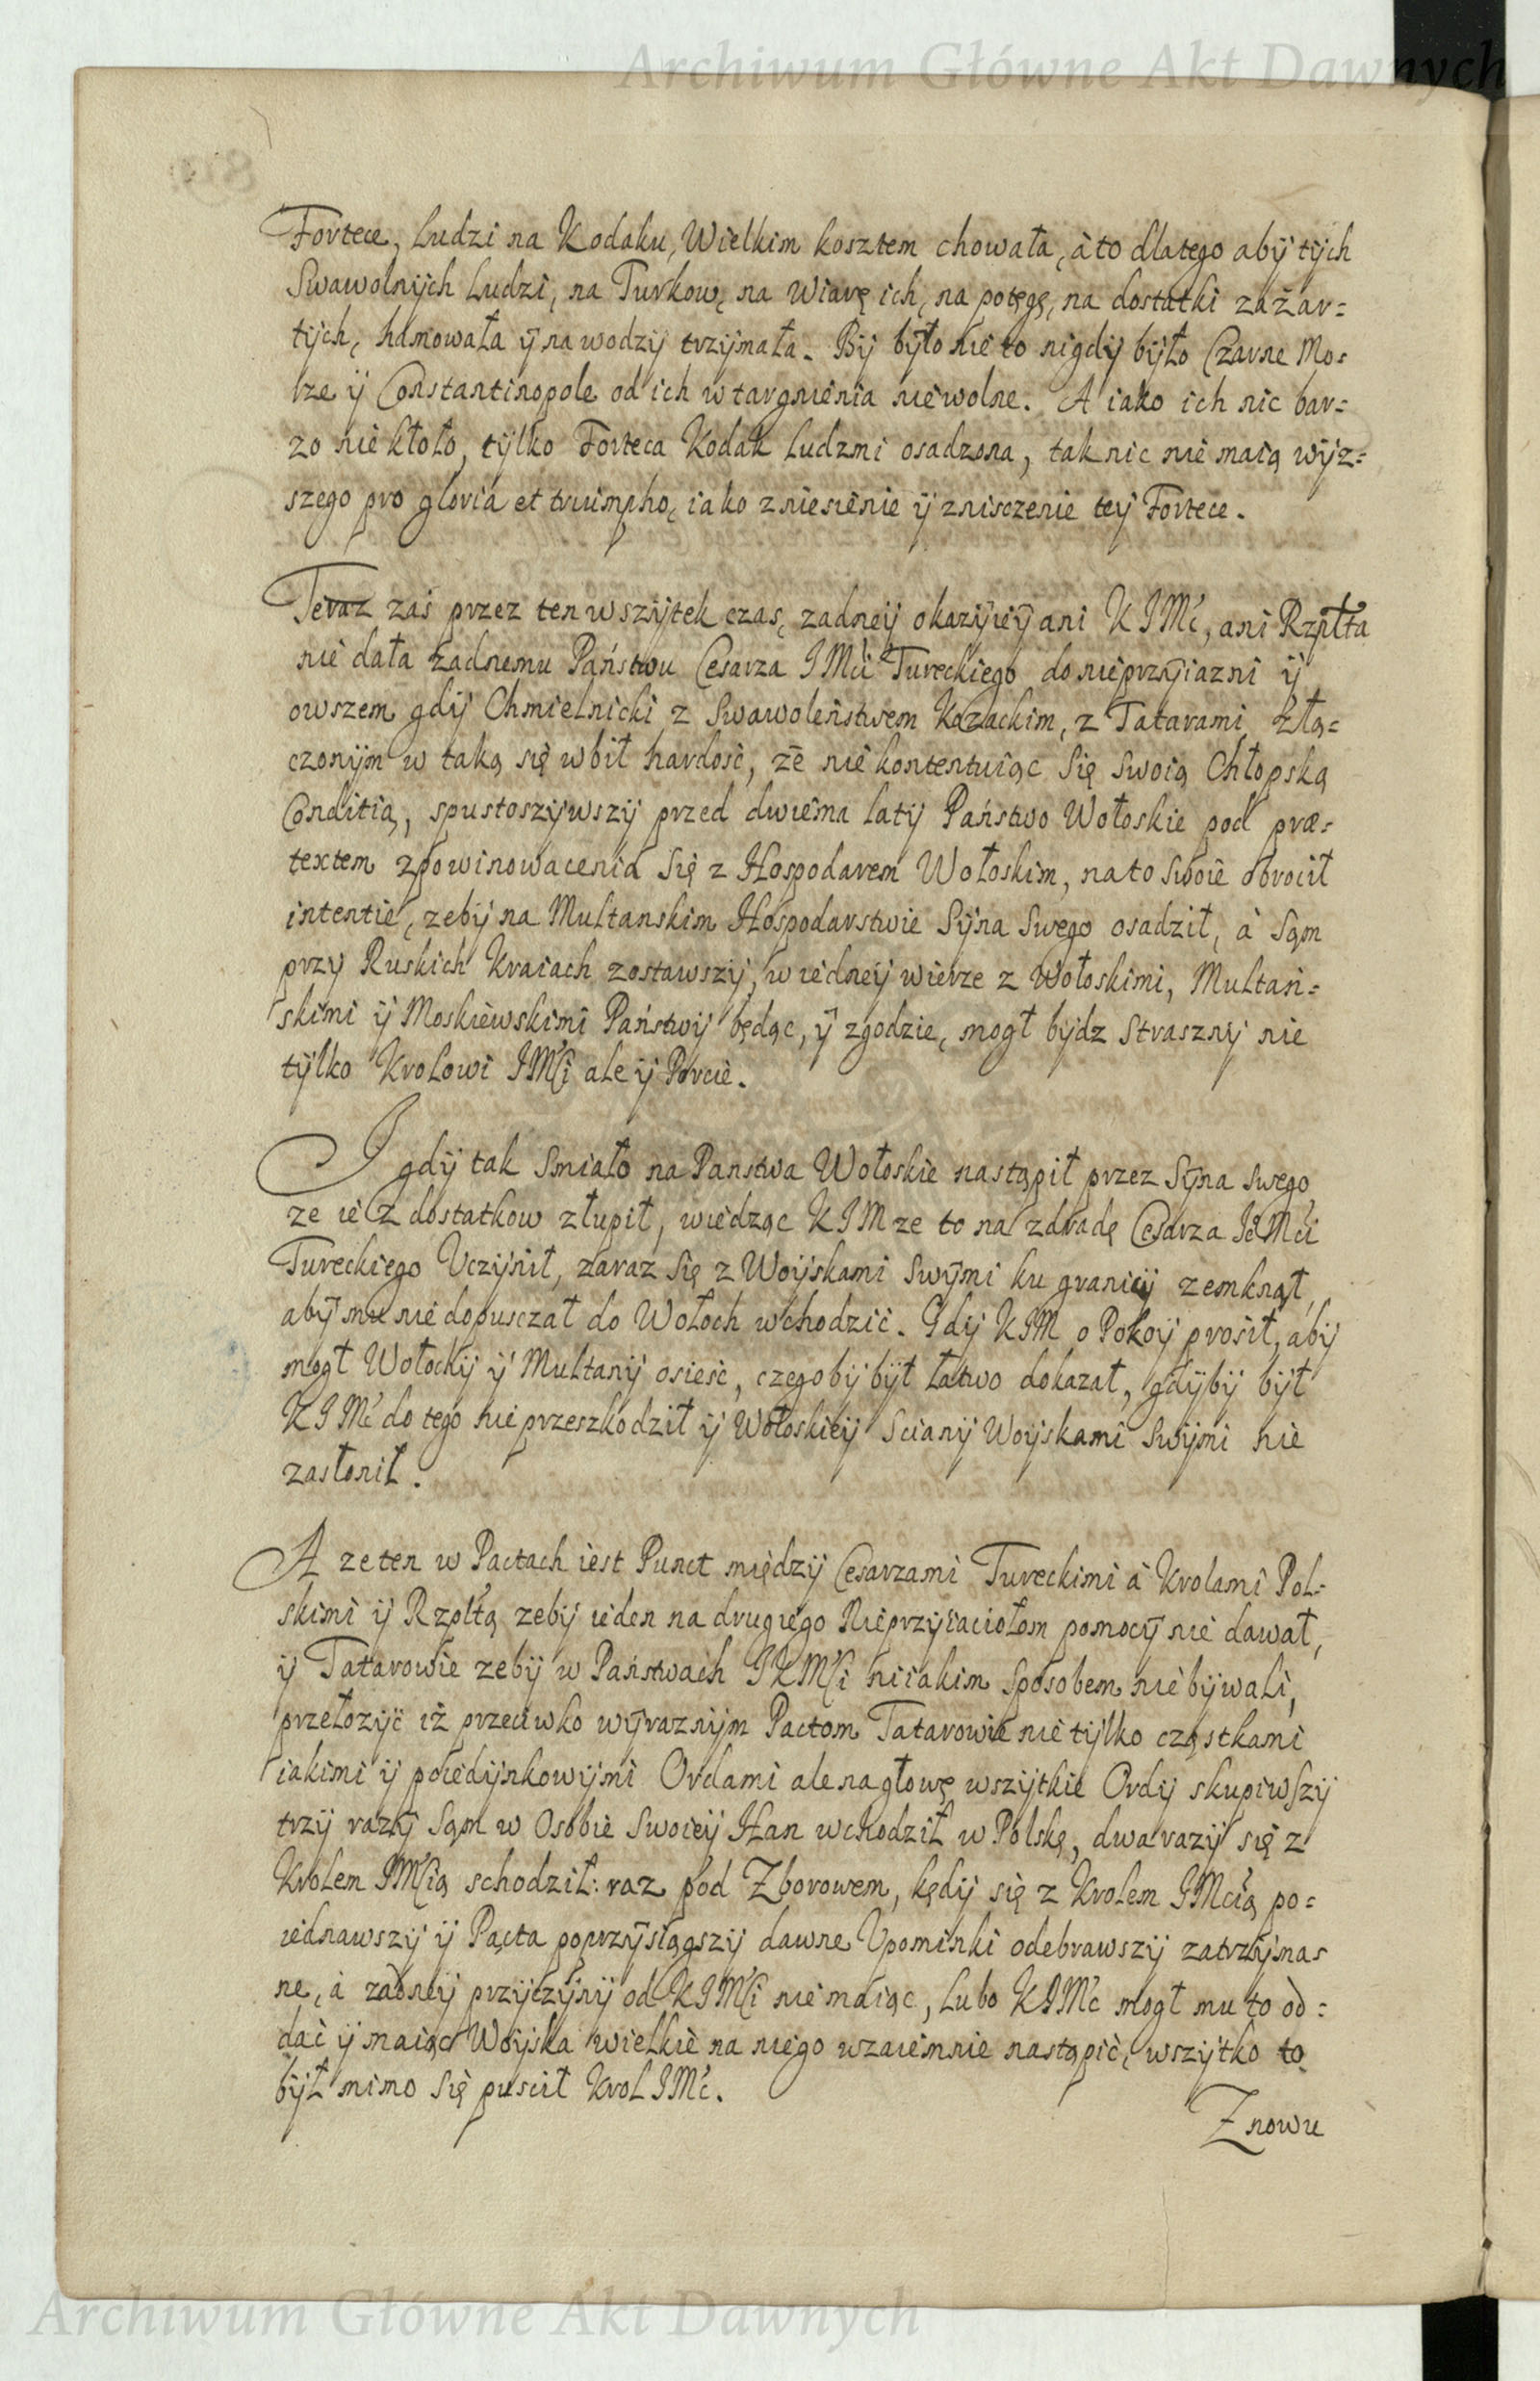 Archiwum Główne Akt Dawnych
Fortece, Ludzi na Kodaku, Wielkim kosztem chowała, à to dlatego abÿ tÿch
Swawolnÿch Ludzi, na Turkow, na Wiarę ich, na potęgę, na dostatki zażar=
tÿch, hamowała ÿ na wodzÿ trzÿmała. Bÿ bÿło nie to nigdÿ bÿło Czarne Mo=
rze ÿ Constantinopole od ich wtargnienia niewolne. A iako ich nic bar=
zo nie kłoło, tÿlko Forteca Kodak Ludzmi osadzona, tak nic nie maią wÿz=
szego pro gloria et triumpho, iako zniesienie ÿ znisczenie teÿ Fortece.
Teraz zaś przez ten wszÿtek czas, zadneÿ okazÿieÿ ani K I Mć, ani Rzpłta
nie dała żadnemu Państwu Cesarza I Mći Tureckiego do nieprzÿiazni ÿ
owszem gdÿ Chmielnicki z Swawoleństwem Kozackim, z Tatarami złą=
czonÿm w taką się wbił hardość, że nie kontentuiąc Się Swoią Chłopską
Conditią, spustoszÿwszÿ przed dwiema latÿ Państwo Wołoskie pod præ=
textem zpowinowacenia Się z Hospodarem Wołoskim, na to Swoie obrocił
intentie, zebÿ na Multanskim Hospodarstwie Sÿna Swego osadził, à Sąm
przy Ruskich Kraiach zostawszÿ, w iedneÿ wierze z Wołoskimi, Multań=
skimi ÿ Moskiewskimi Państwÿ będąc, ÿ zgodzie, mogł bÿdz Strasznÿ nie
tÿlko Krolowi IMśi ale ÿ Porcie.
I gdÿ tak Smiało na Panstwa Wołoskie nastąpił przez Sÿna Swego
ze ie z dostatkow złupił, wiedząc K I M ze to na zdradę Cesarza IeMći
Tureckiego Vczÿnił, zaraz Się z Woÿskami Swÿmi ku granicÿ zemknął,
abÿ mu nie dopusczał do Wołoch wchodzić. Gdÿ KIM o Pokoÿ prosił, abÿ
mogł Wołochÿ ÿ Multanÿ osieść, czegobÿ bÿł łatwo dokazał, gdÿbÿ bÿł
K I Mć do tego nie przeszkodził ÿ Wołoskieÿ Scianÿ Woÿskami Swÿmi nie
zasłonił.
A ze ten w Pactach iest Punct międzÿ Cesarzami Tureckimi à Krolami Pol=
skimi ÿ Rzpłtą zebÿ ieden na drugiego Nieprzÿiaciołom pomocÿ nie dawał,
ÿ Tatarowie zebÿ w Państwach I K Mśi niiakim Sposobem nie bÿwali,
przełozÿć iż przeciwko wÿraznÿm Pactom Tatarowie nie tÿlko cząstkami
iakimi ÿ poiedÿnkowÿmi Ordami ale na głowę wszÿtkie Ordÿ skupiwszÿ
trzÿ razÿ Sąm w Osobie Swoieÿ Han wchodził w Polskę, dwa razÿ się z
Krolem IMśią schodził: raz pod Zborowem, kędÿ się z Krolem IMcią po=
iednawszÿ ÿ Pacta poprzÿsiągszÿ dawne Vpominki odebrawszÿ zatrzÿma=
ne, à zadneÿ przÿczÿnÿ od K I Mśi nie maiąc, Lubo K I Mć mogł mu to od=
dać ÿ maiąc Woÿska wielkie na niego wzaiemnie nastąpić, wszÿtko to
bÿł mimo Się puscił Krol I Mć.
Znowu
Archiwum Główne Akt Dawnych